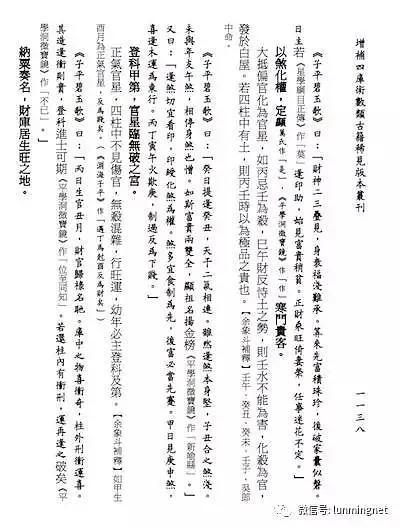 增補四庫術數類古籍稀見版本叢刊
一一三八
《子平碧玉歌》曰:「財神二三疊見,身衰福淺難承。算來先富積珠珍,後破家囊似磬。
日主若《星學綱目正傳》作「莫」逢印助,始見富貴稍貧。正財乘旺倚妻榮,任事迷花不定。」
以煞化權,定顯萬氏作「是」,《子平學洞微寶鏡》作「作」寒門貴客。
大抵偏官化為官星,如丙忌壬為殺,巳午財反恃土之勢,則壬水不能為害,化殺為官,
發於白屋。若四柱中有土,則丙壬時以為極品之貴也。【余象斗補釋】壬午、癸丑、癸未、壬子,吳郎
中命。
《子平碧玉歌》曰:「癸日提逢癸丑,天干二氣相連。雖然逢煞本身堅,子丑合之煞淺。
未與年支午煞,相停身煞也憎。如斯富貴兩雙全,顯祖名揚金榜《平學洞微寶鏡》作「新喻縣」。」
又曰:「逢煞切宜看印,印綬化煞為權。煞多宜食制為先,後富必當先蹇。甲日見庚申煞,
喜逢木運為東行。丙丁寅午火欺庚,制過反為下賤。」
登科甲第,官星臨無破之宮。
正氣官星,四柱中不見傷官,無殺混雜,行旺運,幼年必主登科及第。【余象斗補釋】如甲生
酉月為正氣官星,反為殺矣。(《淵海子平》作「遇丁為剋酉反為財矣」)
《子平碧玉歌》曰:「丙日生官丑月,財官歸樣名馳。庫中之物喜衝奇,柱外刑衝運喜。
其造逢衝則貴,登科進士可期《平學洞微寶鏡》作「位至同知」。若還柱內有衝刑,運再逢之破矣《平
學洞微寶鏡》作「不已」。」
納粟奏名,財庫居生旺之地。
微信号: lunmingnet